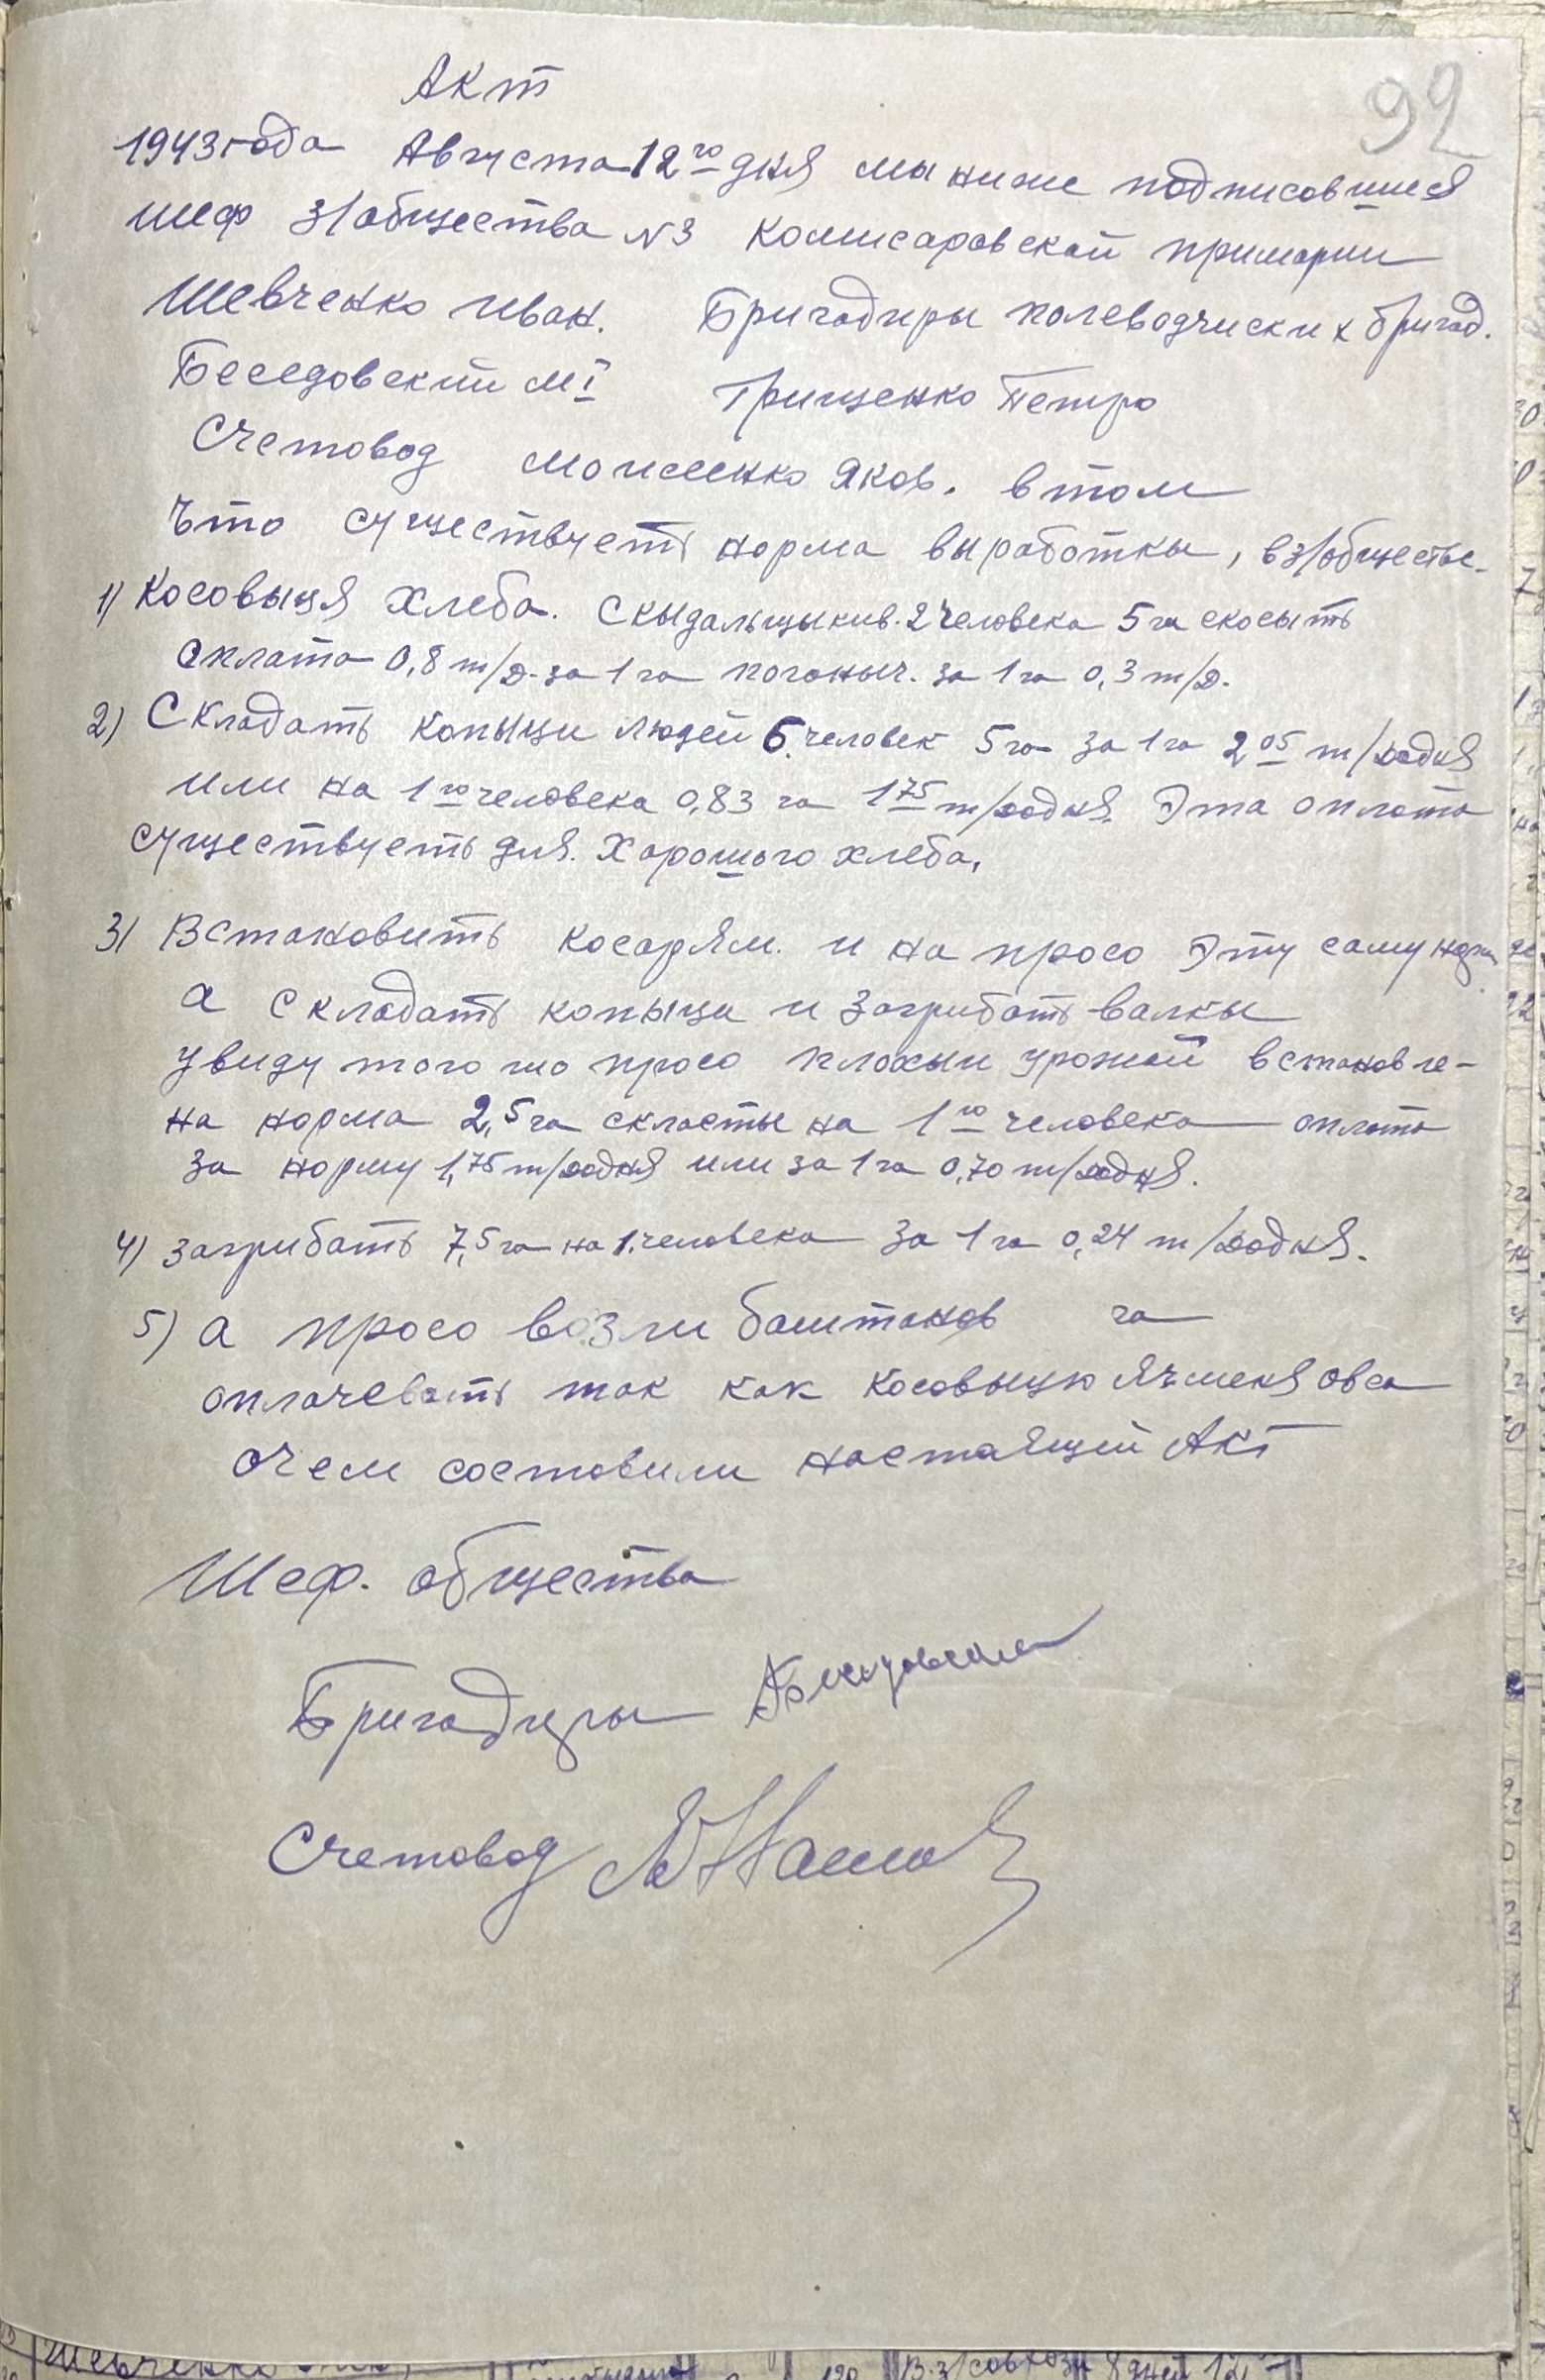 92
Акт
1943 года Августа 12го дня мы ниже подписовшиеся
шеф з/общества №3 Комисаровской примарии
Шевченко Иван. Бригадиры полеводчиских бригад.
Беседовский М I Грищенко Петро
Счетовод Моисеенко Яков. в том
что существуеть норма выработкы, в з/обществе.
1) Косовыця хлеба. Скыдальщыкив. 2 человека 5 га скосыть
оплата 0,8 т/д. за 1 га погоныч. за 1 га 0,3 т/д.
2) Складать копыци людей 6 человек 5 га за 1 га 2 05 т/додня
или на 1го человека 0,83 га 1 75 т/додня. Эта оплата
существуеть для. Хорошого хлеба.
3) Встановить косарям. и на просо эту саму норм
а складать копыци и загрибать валкы
увиду того шо просо плохыи урожай встановле-
на норма 2,5 га скласты на 1го человека оплата
за норму 1,75 т/додня или за 1 га 0,70 т/додня.
4) загрибать 7,5 га на 1. человека за 1 га 0,24 т/додня.
5) а просо возли баштанов га
оплачевать так как косовыцю ячменя овса
очем составили настаящий Акт
Шеф. общества
Бригадиры
Счетовод
Шевченко